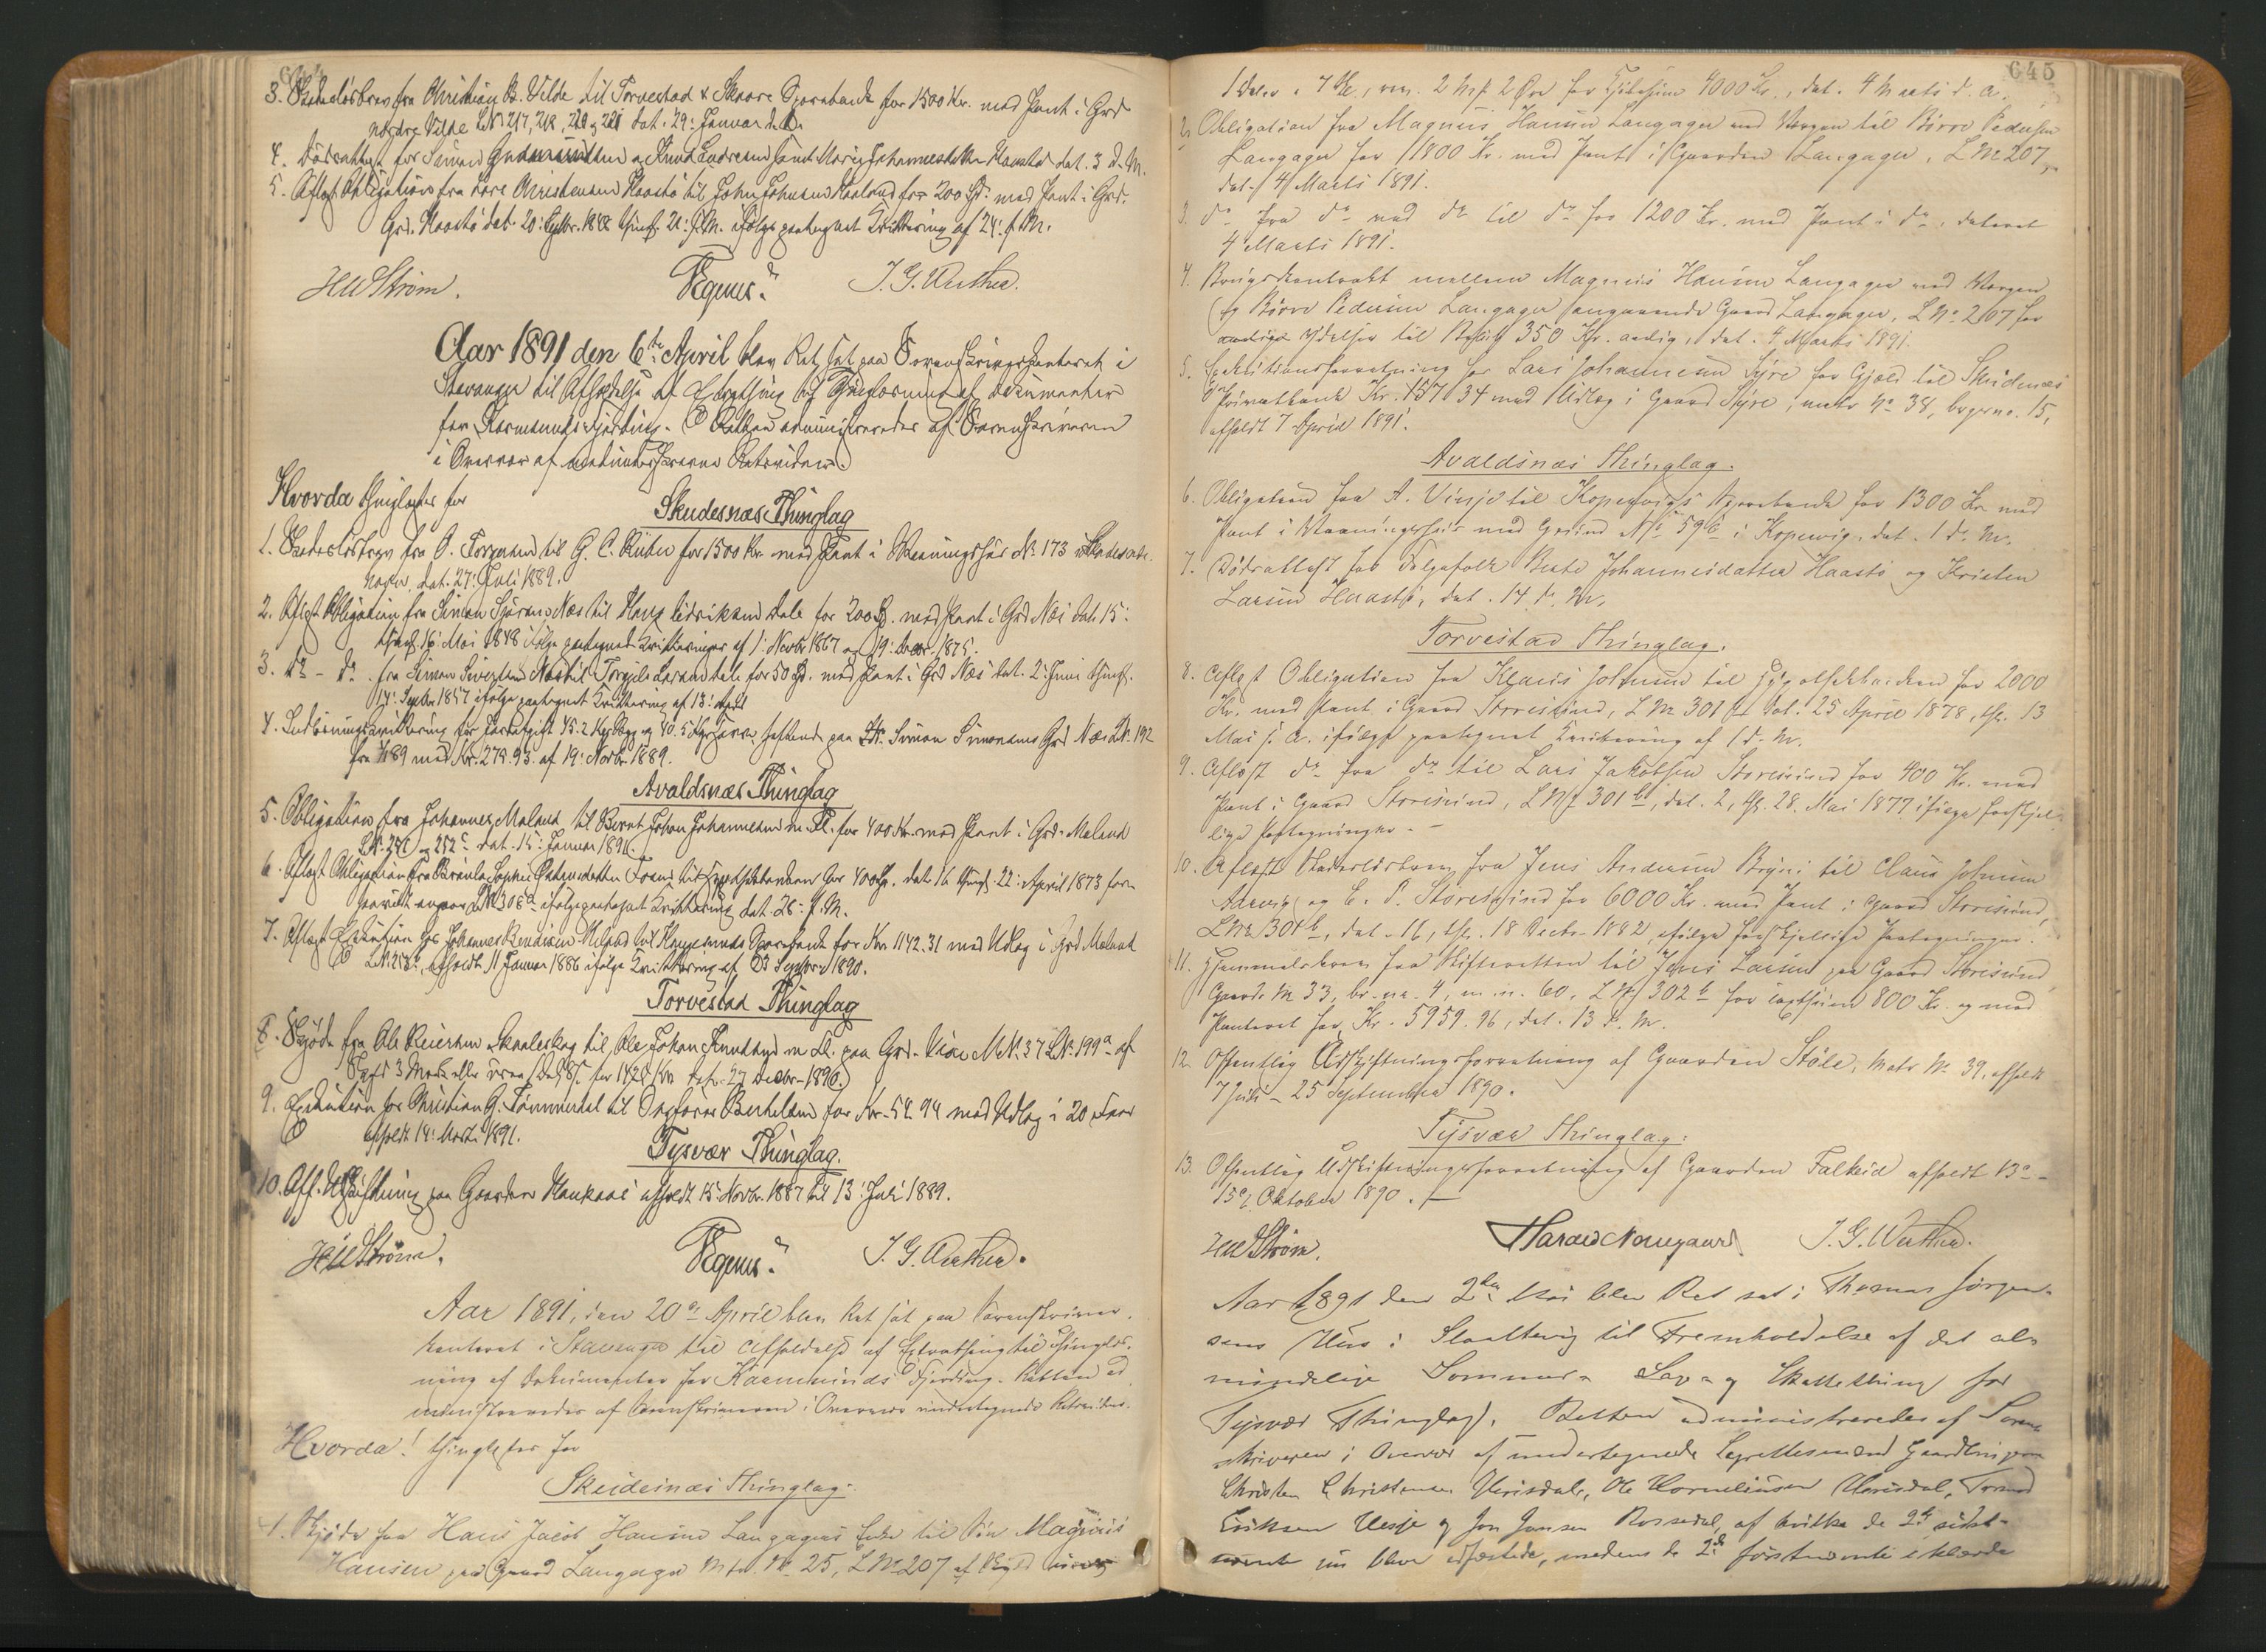 644
3. Skadesløsbrev fra Christian B. Velde til Torvestad & Skaare Sparebank for 1500 Kr. med Pant i Grd
nordre Velde LNo 217, 218, 220 og 221 dat. 29. Januar d. A.
4. Dødsattest for Simon Gudmundsen og Knud Endresen samt Marie Johannesdatter Haastø dat. 3 d. M.
5. Aflæst Obligation fra Lars Christensen Haastø til John Johnsen Haaland for 200 Spd. med Pant i Grd.
Grd. Haastø dat. 20. Septbr. thingl. 21. ifølge paategnet Kvittering af 24. f. M.
HWStrøm. Vegner. J. G. Werther.
Aar 1891 den 6te April blev Ret sat paa Sorenskriverkontoret i
Stavanger til Afholdelse af Extrathing til Thinglæsning af Dokumenter
for Karmsunds Fjerding. Retten administreredes af Sorenskriveren
i Overvær af undertegnede Retsvidner.
Hvorda thinglæstes for
Skudesnæs Thinglag
1. Skadesløsbrev fra O. Torgersen til G. C. for 1500 Kr. med Pant i Vaaningshus No 173 i Skudesnæs-
havn, dat. 27. Juli 1889.
2. Aflæst Obligation fra Simon Næs til Hans Didriksen Dale for 200 Spd. med Pant i Grd Næs dat. 15.
thingl. 16 Mai 1848 ifølge paategnede Kvitteringer af 1. Novbr 1867 og 19. Decbr. 1875.
3. do - do. fra Simon Sivertsen Næs til Torgils Larsen Dale for 50 Spd. med Pant i Grd Næs dat. 2. Juni thingl.
14. Septbr 1857 ifølge paategnet Kvittering af 13. April
4. Indløsningskvittering for Jordafgift 45.2 Kgr Byg og 40.5 Kgr Havre heftende paa Simon Simonsens Grd Næs LNo. 192
fra 1/1 89 med Kr. 279.93. af 19. Novbr. 1889.
Avaldsnæs Thinglag
5. Obligation fra Johannes Meland til Bernt Johan Johannesen m. Fl. for 400 Kr. med Pant i Grd. Meland
LNo. og 252c dat. 15. Januar 1891.
6. Aflæst Obligation fra Sophie Pedersdatter til Hypothekbanken for 400 Spd. dat. 16 thingl. 22. April 1873
LNo 308a ifølge paategnet Kvittering dat. 26. f. M.
7. Aflæst Exekution hos Johannes Meland til Haugesunds Sparebank for Kr. 1142.31 med Udlæg i Grd. Meland
LNo. afholdt 11 Januar 1886 ifølge Kvittering af 23 Septbr 1890.
Torvestad Thinglag
8. Skjøde fra Ole Reiersen Skaaleskog til Ole Johan Knudsen m Fl. paa Grd. MNo. 37 LNo. 199a af
Skyld 3 Mark eller Øre for 1420 Kr dat. 27 Decbr. 1890.
9. Exekution hos Christian G. Tømmerdal til Berthelsen for Kr. 54.94 med Udlæg i 20 Faar
afholdt 14. Marts 1891.
Tysvær Thinglag.
10. Off. Udskiftning paa Gaarden Haukaas afholdt 15. Novbr. 1887 til 13. Juli 1889.
HWStrøm. Vegner. J. G. Werther.
Aar 1891, den 20de April blev Ret sat paa Sorenskriver-
kontoret i Stavanger til Afholdelse af Extrathing til Thinglæs-
ning af Dokumenter for Karmsunds Fjerding. Retten ad
ministreredes af Sorenskriveren i Overvær undertegnede Retsvidner.
Hvorda! thinglæstes for
Skudesnæs Thinglag.
1. Skjøde fra Hans Jacob Hansen Langager til Søn Magnus
Hansen paa Gaard Langager Mtr. No. 25, LNo 207 af Skyld
645
1 Daler 7 Sk., rev. 2 Mrk 2 Øre for Kjøbesum 4000 Kr., dat. 4 Marts d. A.
2. Obligation fra Magnus Hansen Langager med Værgen til Børre Pedersen
Langager for 1800 Kr. med Pant i Gaarden Langager, LNo 207,
dat. 4 Marts 1891.
3. do fra do med do til do for 1200 Kr. med Pant i do, dateret
4 Marts 1891.
4. Brugskontrakt mellem Magnus Hansen Langager med Værgen
og Børre Pedersen Langager angaaende Gaard Langager, LNo. 207 for
aarlige Ydelser til Beløb 350 Kr. aarlig, dat. 4 Marts 1891.
5. Exekutionsforretning hos Lars Johannesen Syre for Gjæld til Skudenæs
Privatbank Kr. 157.34 med Udlæg i Gaard Syre, matr No 38, brgsno. 15,
afholdt 7 April 1891.
Avaldsnæs Thinglag.
6. Obligation fra A. Vinje til Kopervigs Sparebank for 1300 Kr. med
Pant i Vaaningshus med Grund No 59b i Kopervig, dat. 1 d. M.
7. Dødsattest for Følgefolk Berte Johannesdatter Haastø og Kristen
Larsen Haastø, dat. 14 d. M.
Torvestad Thinglag.
8. Aflæst Obligation fra Klaus Johnsen til Hypothekbanken for 2000
Kr. med Pant i Gaard Storesund, LNo 301b dat. 25 April 1878, thl. 13
Mai s. A. ifølge paategnet Kvittering af 1 d. M.
9. Aflæst do fra do til Lars Jakobsen Storesund for 400 Kr. med
Pant i Gaard Storesund, LNo 301b, dat. 2, thl. 28. Mai 1877 ifølge forskjel-
lige Paategninger. —
10. Aflæst Skadesløsbrev fra Jens Andersen Brynn til Claus Johnsen
og E. P. Storesund for 6000 Kr. med Pant i Gaard Storesund,
LNo 301b, dat. 16, thl. 18 Decbr 1882, ifølge forskjellige Paategninger.
11. Hjemmelsbrev fra Skifteretten til Jens Larsen paa Gaard Storesund,
Gaards No 33, br. no. 4, m. n. 60, LNo 302b for Taxtsum 800 Kr. og med
Panteret for Kr. 5959.96, dat. 13 d. M.
12. Offentlig Udskiftningsforretning af Gaarden Støle, Matr. No. 39, afholdt
7 Juli - 25 September 1890.
Tysvær Thinglag:
13. Offentlig Udskiftningsforretning af Gaarden Falkeid afholdt 13de -
15de Oktober 1890. —
HWStrøm. Harald Nørregaard J. G. Werther.
Aar 1891 den 2den Mai blev Ret sat i Thomas Jørgen-
sens Hus i Slaattevig til Fremholdelse af det al-
mindelige Sommer- Sage- og Skattething for
Tysvær Thinglag. Retten administreredes af Soren-
skriveren i Overvær af undertegnede Lagrettesmænd Gaardbrugerne
Christen Christensen Hervisdal, Ole Korneliussen Hervisdal, Tormod
Eriksen Vesje og Jon Jonsen Rossedal, af hvilke de 2de sidst-
nævnte nu blev edfæstede, medens de 2de førstnævnte erklærede